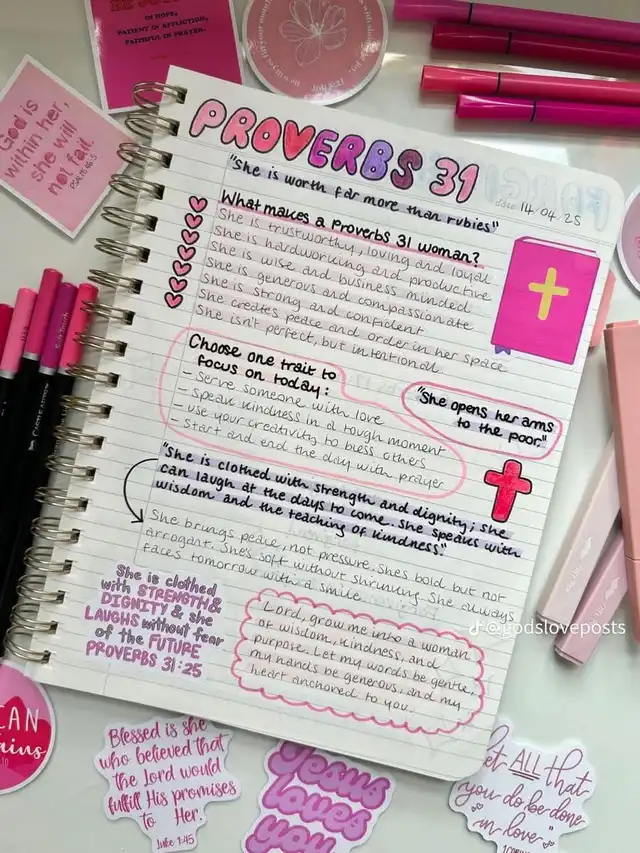 IN HOPE,
PATIENT IN AFFLICTION,
FAITHFUL IN PRAYER.
God is
within her,
she will
not fail.
PSALM 46:5
PROVERBS 31
"She is worth far more than rubies"
date 14.04.25
What makes a Proverbs 31 woman?
She is trustworthy, loving and loyal
She is hardworking and productive
She is wise and business minded
She is generous and compassionate
She is strong and confident
She creates peace and order in her space
She isn't perfect, but intentional
Choose one trait to
focus on today:
- Serve someone with love
- Speak kindness in a tough moment
- use your creativity to bless others
- Start and end the day with prayer
"She opens her arms
to the poor."
"She is clothed with strength and dignity; she
can laugh at the days to come. She speaks with
wisdom and the teaching of kindness."
She brings peace, not pressure. She's bold but not
arrogant. She's soft without shrinking. She always
faces tomorrow with a smile
She is clothed
with STRENGTH &
DIGNITY & she
LAUGHS without fear
of the FUTURE
PROVERBS 31:25
Lord, grow me into a woman
of wisdom, kindness, and
purpose. Let my words be gentle,
my hands be generous, and my
heart anchored to you.
@godsloveposts
CAN
Blessed is she
who believed that
the Lord would
fulfill His promises
to Her.
Luke 1:45
Jesus
loves
you
let ALL that
you do be done
in love"